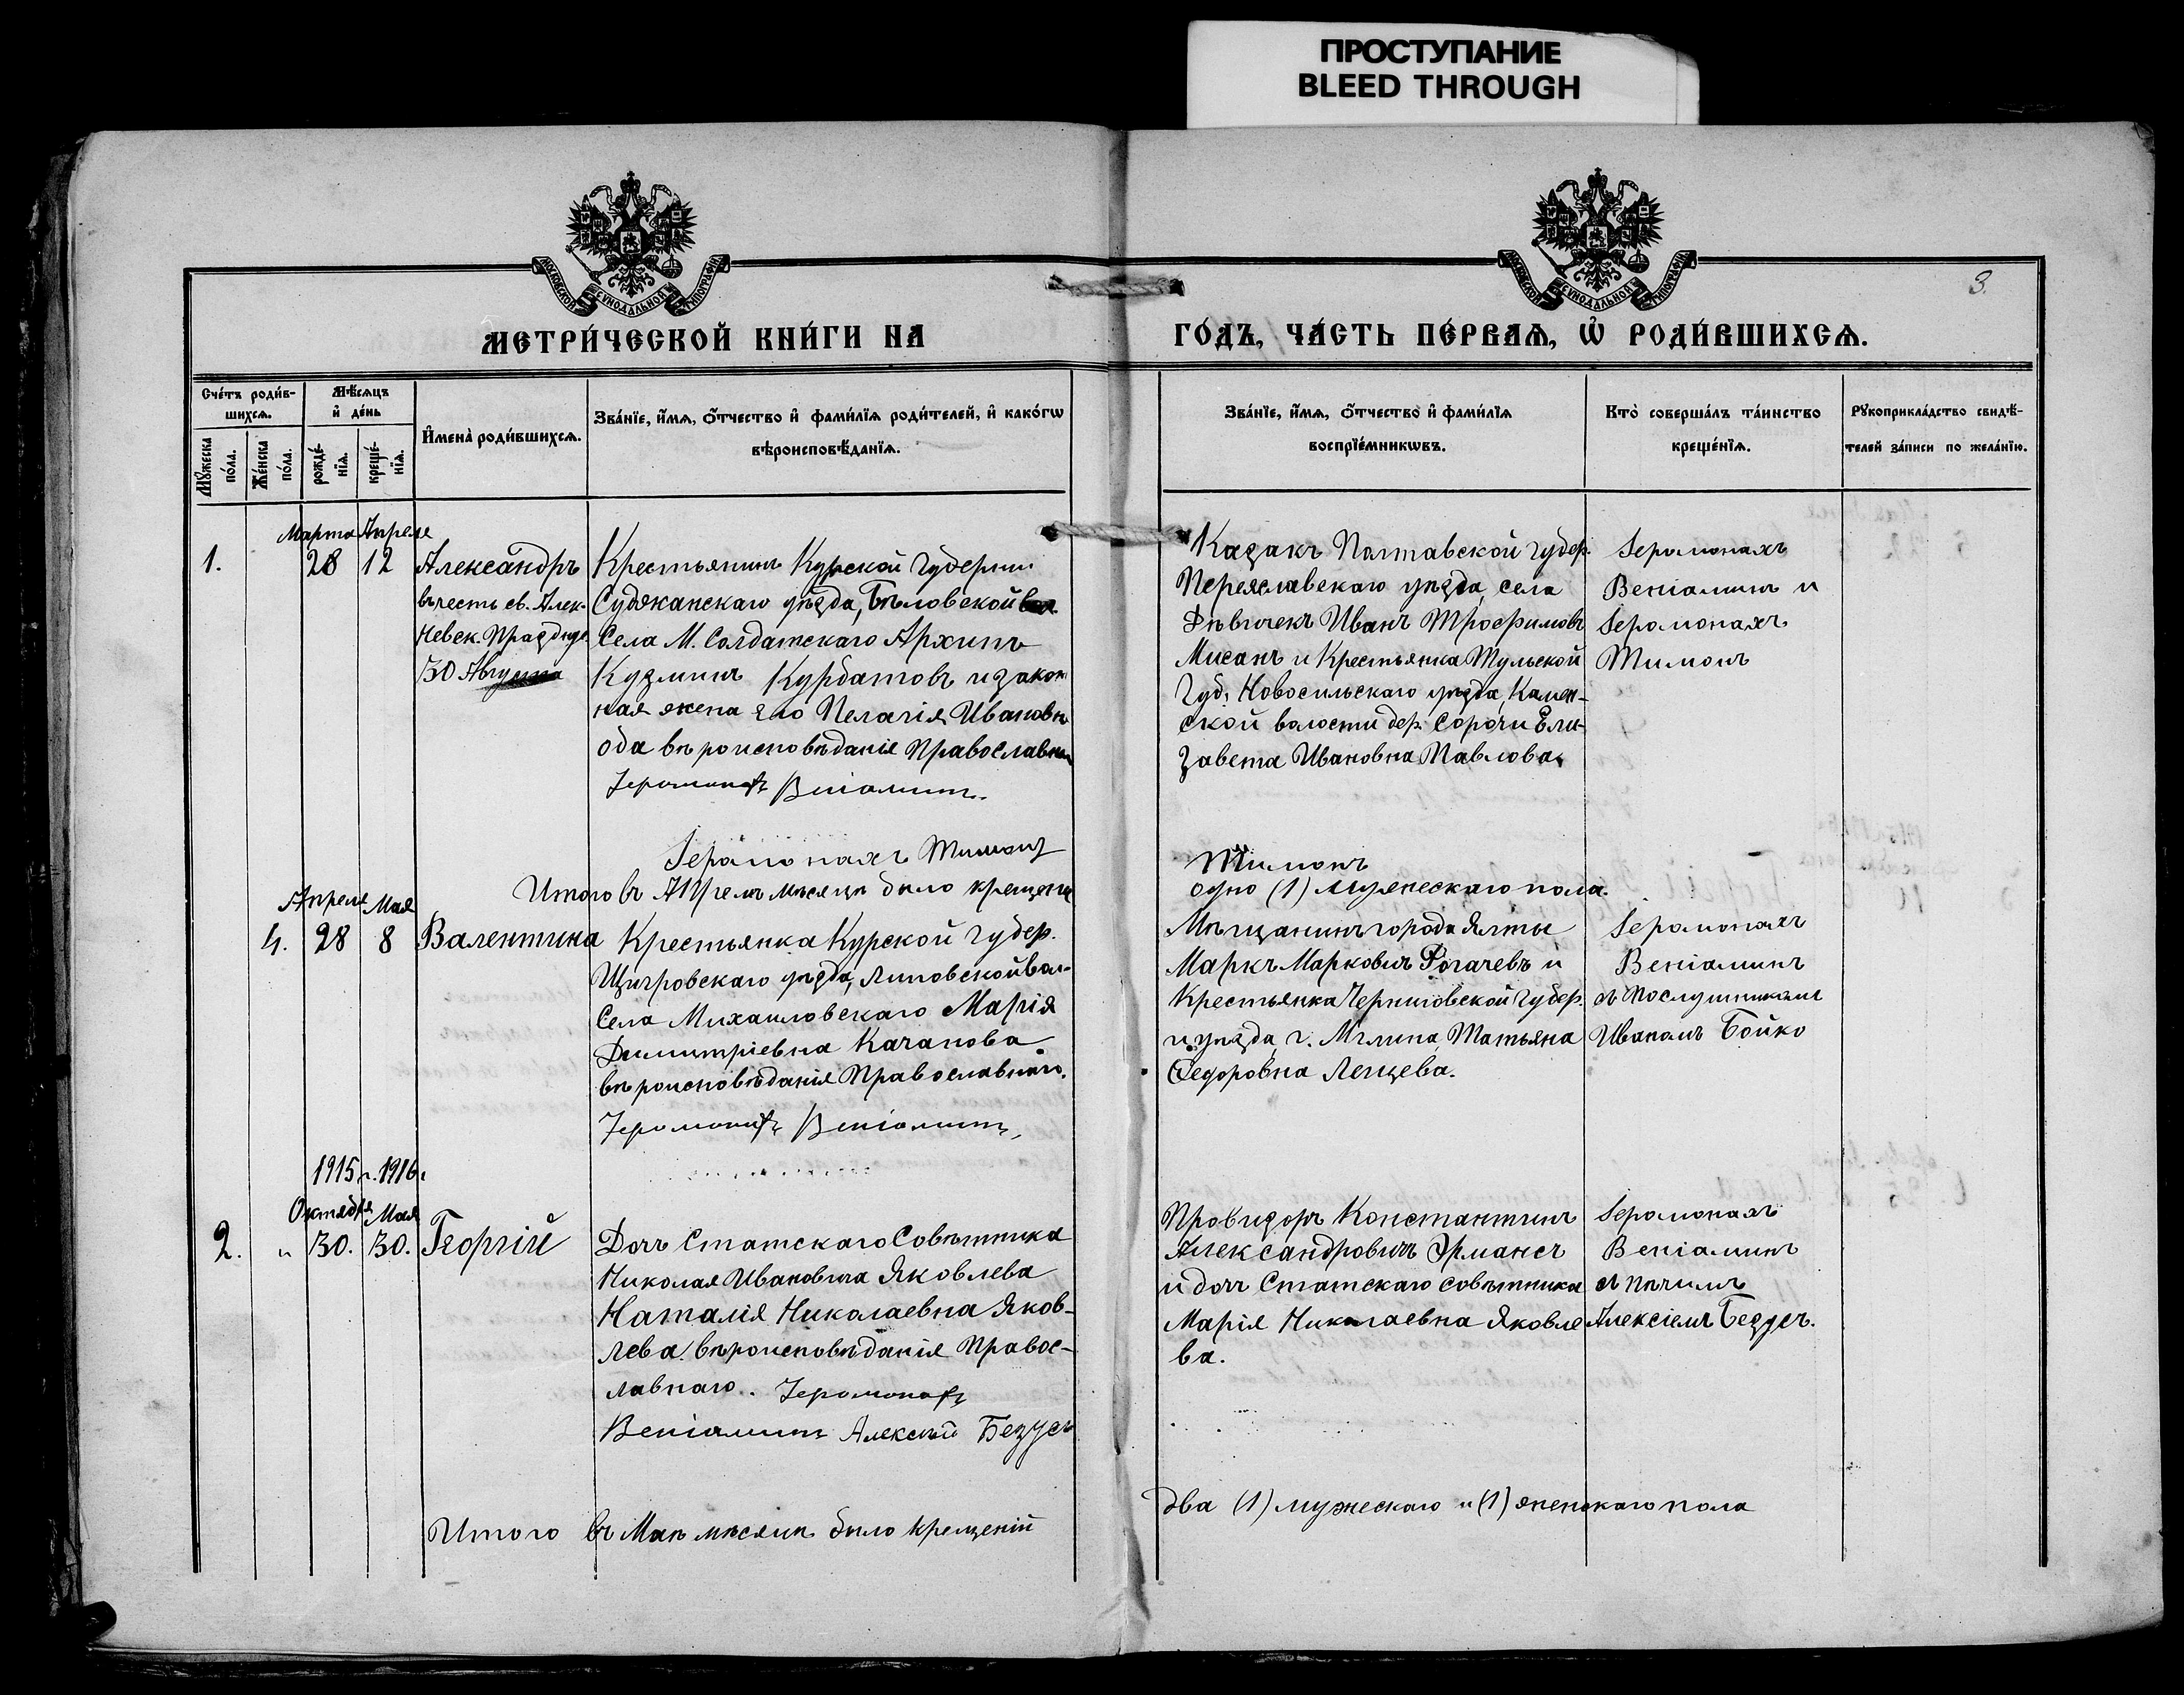 ПРОСТУПАНИЕ
BLEED THROUGH
МОСКОВСКОЙ СѴНОДАЛЬНОЙ ТИПОГРАФІИ
МОСКОВСКОЙ СѴНОДАЛЬНОЙ ТИПОГРАФІИ
3.
МЕТРИ́ЧЕСКОЙ КНИ́ГИ НА
ГО́ДЪ, ЧА́СТЬ ПЕ́РВАѦ, Ѡ҆ РОДИ́ВШИХСѦ.
Сче́тъ роди́в-
шихсѧ.
Мꙋ́жеска
по́ла.
Же́нска
по́ла.
Мѣ́сѧцъ
и҆ де́нь
рожде́-
нїѧ.
креще́-
нїѧ.
И҆мена̀ роди́вшихсѧ.
Зва́нїе, и҆́мѧ, ѻ҆́тчество и҆ фами́лїѧ роди́телей, и҆ како́гѡ
вѣроисповѣ́данїѧ.
Зва́нїе, и҆́мѧ, ѻ҆́тчество и҆ фами́лїѧ
воспрїе́мникѡвъ.
Кто̀ соверша́лъ та́инство
креще́нїѧ.
Рꙋкоприкла́дство свидѣ́-
телей за́писи по жела́нїю.
Марта Апреля
1. 28 12
Александръ
въ честь св. Алек.
Невск. Празднуе
30 Августа
Крестьянинъ Курской Губерніи
Суджанскаго уѣзда, Бѣловской вол.
Села М. Солдатскаго Архипъ
Кузминъ Курбатовъ и закон
ная жена его Пелагія Ивановн
оба вѣроисповѣданія Православн
Іеромонахъ Веніаминъ.
Іеромонахъ Тимонъ
Казакъ Полтавской губер.
Переяславскаго уѣзда, села
Дѣвичекъ Иванъ Трофимовъ
Мисанъ и Крестьянка Тульской
Губ. Новосильскаго уѣзда, Камен-
ской волости дер. Сорочи Ели-
завета Ивановна Павлова.
Іеромонахъ
Веніаминъ и
Іеромонахъ
Тимонъ
Тимонъ
Итого въ Апрелѣ мѣсяцѣ было крещено
одно (1) мужескаго пола.
Апреля Мая
4. 28 8
Валентина
Крестьянка Курской губер.
Щигровскаго уѣзда, Липовской вол-
Села Михаиловскаго Марія
Димитріевна Качанова.
вѣроисповѣданія Православнаго.
Іеромонахъ Веніаминъ,
Мѣщанинъ города Ялты
Маркъ Марковичъ Рогачевъ и
Крестьянка Черниговской губер.
и уѣзда, г. Мглина, Татьяна
Ѳедоровна Ленцева.
Іеромонахъ
Веніаминъ
съ Послушникомъ
Иваномъ Бойко
1915 г. 1916 г.
Октября Мая
2. " 30. 30.
Георгій
Дочь Статскаго Совѣтника
Николая Ивановича Яковлева
Наталія Николаевна Яков-
лева. вѣроисповѣданія Правос-
лавнаго. Іеромонахъ
Веніаминъ Алексѣй Безусъ
Провизоръ Константинъ
Александровичъ Урмансъ
и дочь Статскаго совѣтника
Марія Николаевна Яковле
ва.
Іеромонахъ
Веніаминъ
съ пѣвчимъ
Алексіемъ Безусъ.
Итого въ Маѣ мѣсяцѣ было крещеній
два (1) мужескаго и (1) женскаго пола